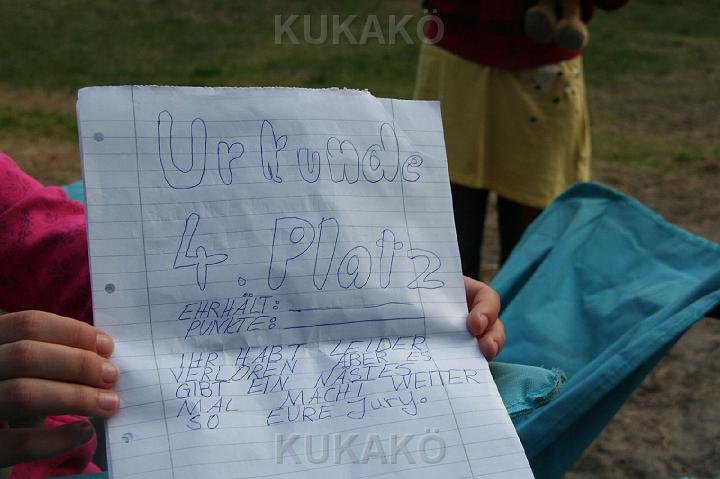 KUKAKÖ
Urkunde
4. Platz
EHRHÄLT:
PUNKTE:
IHR HABT LEIDER
VERLOREN ABER ES
GIBT EIN NÄSTES
MAL MACHT WEITER
SO EURE jury.
KUKAKÖ